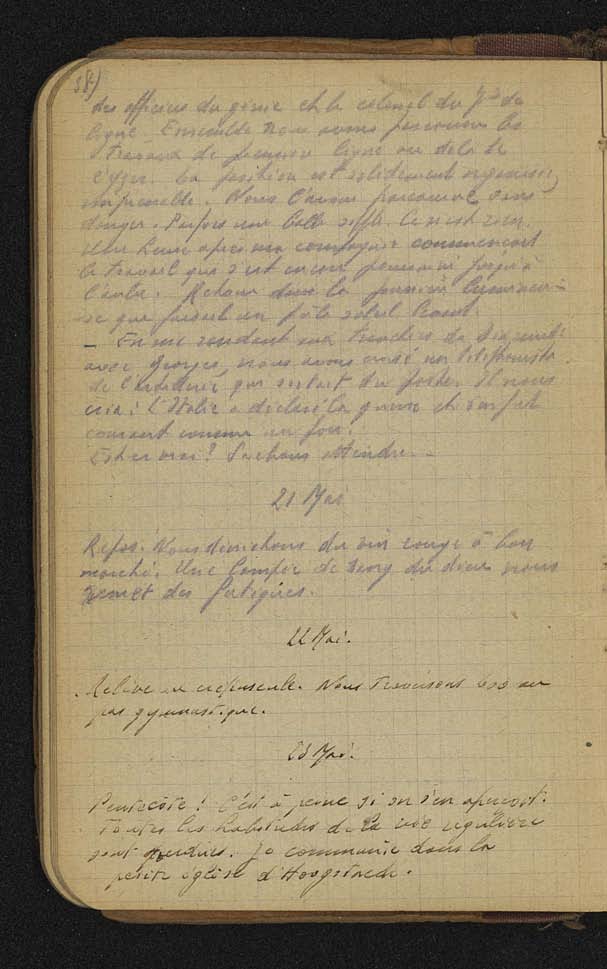 38)
des officiers du génie et le colonel du 7e de
ligne. Ensemble nous avons parcouru les
travaux de première ligne au delà de
l'Yser. La position est solidement organisée,
imprenable. Nous l'avons parcourue sans
danger. Parfois une balle siffle. Ce n'est rien.
Une heure après ma compagnie commençait
le travail qui s'est encore poursuivi jusqu'à
l'aube. Retour dans la première
ce que faisait un soleil levant.
- En me rendant aux tranchées de
avec Georges, nous avons croisé un téléphoniste
de l'artillerie qui sortait du poste. Il nous
cria: l'Italie a déclaré la guerre et s'enfuit
courant comme un fou.
Est-ce vrai? Sachons attendre. -
21 Mai
Repos. Nous dénichons du vin rouge à bon
marché. Une du dieu nous
remet des fatigues.
22 Mai.
Relève au crépuscule. Nous traversons au
pas gymnastique.
23 Mai.
Pentecôte! C'est à peine si on s'en aperçoit.
Toutes les habitudes de la vie régulière
sont perdues. Je communie dans la
petite église d'Hoogstaede.